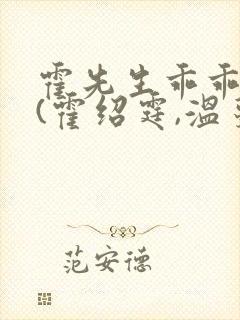 霍先生乖乖
(霍绍霆,温
范安德